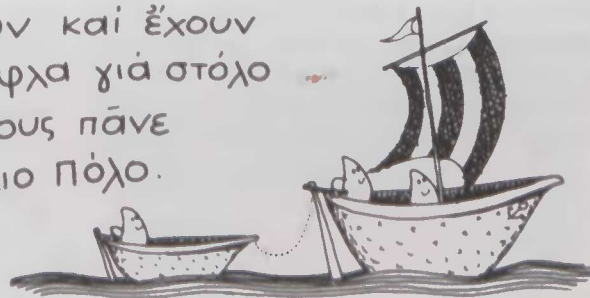 ν καί ἔχουν
φλα γιά στόλο
ους πᾶνε
ιο Πόλο.